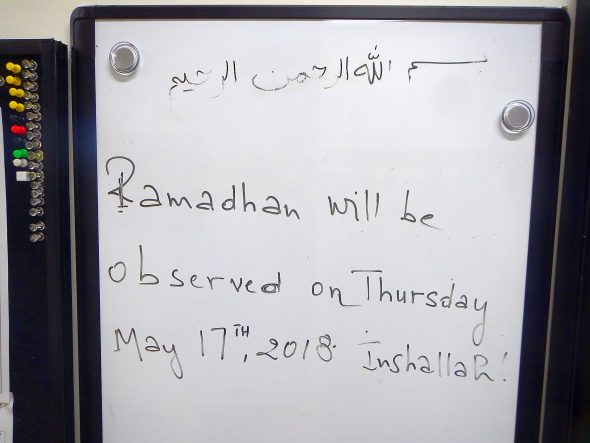 بسم الله الرحمن الرحيم
Ramadhan will be
observed on Thursday
May 17TH, 2018. Inshallah!